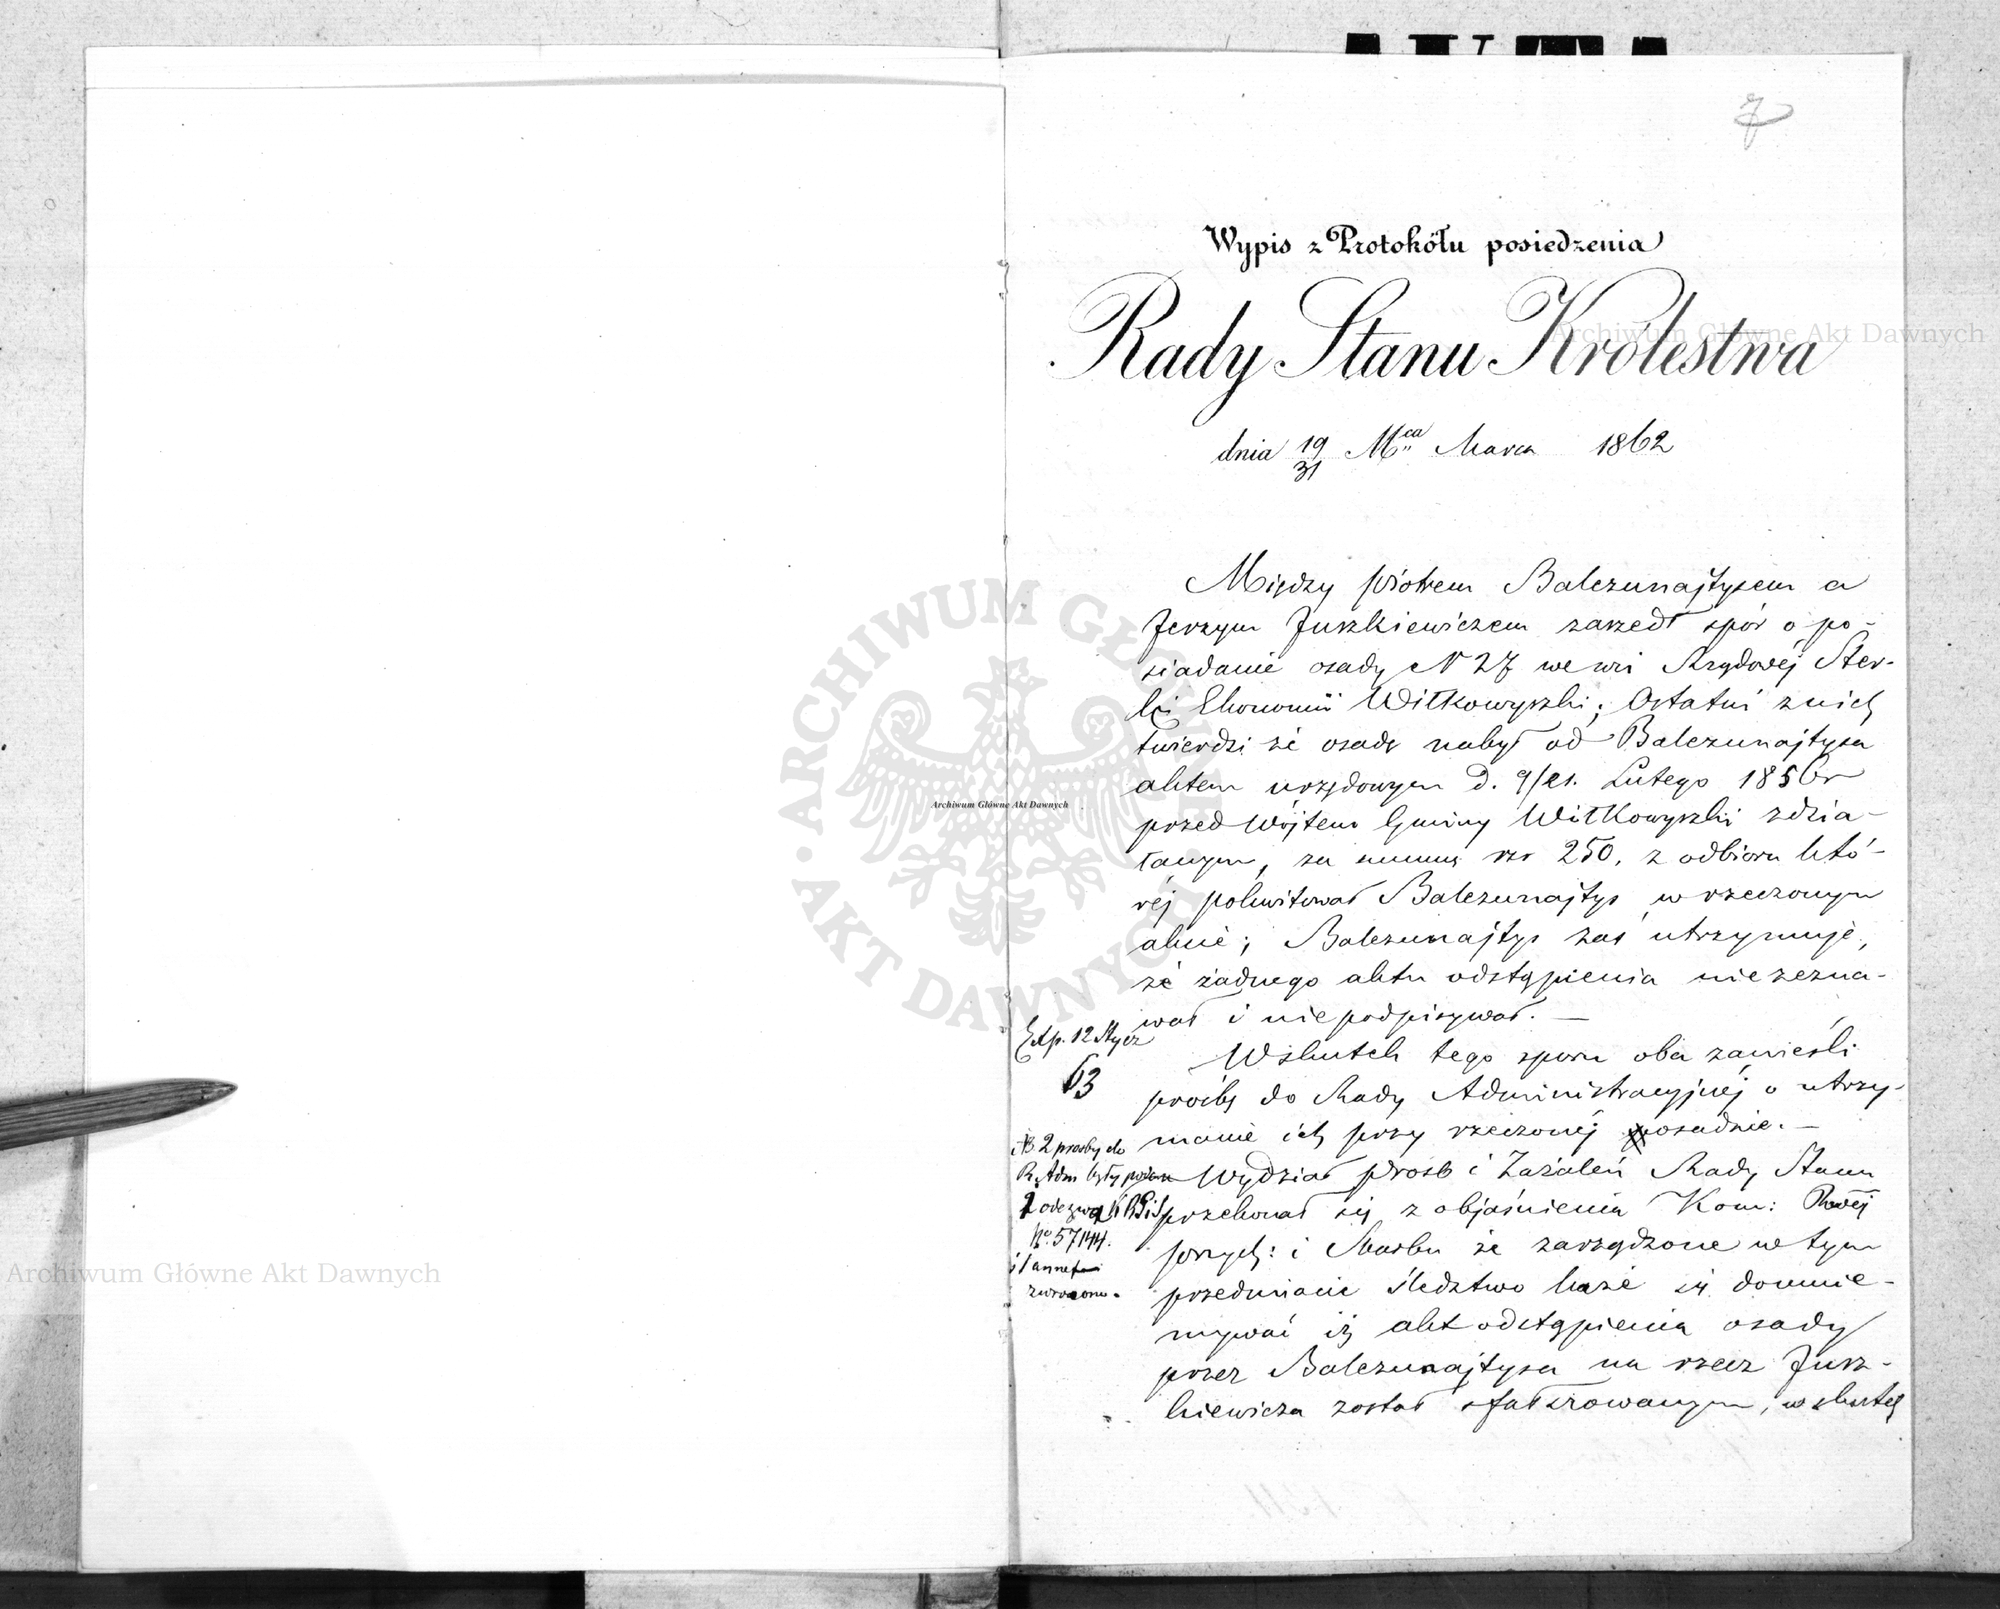 7
Wypis z Protokółu posiedzenia
Rady Stanu Królestwa
dnia 19/31 Mca Marca 1862
Między Piotrem Balczunajtysem a
Jerzym Juszkiewiczem zaszedł spór o po-
siadanie osady N 27 we wsi Rządowéj Ster-
ki Ekonomii Wiłkowyszki; Ostatni z nich
twierdzi że osadę nabył od Balczunajtysa
aktem urzędowym d. 9/21. Lutego 1856r
przed Wójtem Gminy Wiłkowyszki zdzia-
łanym, za summę rsr 250, z odbioru któ-
réj pokwitował Balczunajtys w rzeczonym
akcie; Balczunajtys zaś utrzymuje,
że żadnego aktu odstąpienia nie zezna-
wał i nie podpisywał. —
Wskutek tego sporu oba zanieśli
prośby do Rady Administracyjnéj o utrzy-
manie ich przy rzeczonéj osadzie. —
Wydział Prośb i Zażaleń Rady Stanu
przekonał się z objaśnienia Kom: Rządowéj
Przych: i Skarbu że zarządzone w tym
przedmiocie śledztwo każe się domnie-
mywać iż akt odstąpienia osady
przez Balczunajtysa na rzecz Jusz-
kiewicza został sfałszowanym, wskutek
Exp. 12 Stycz
63
NB. 2 prosby do
R. Adm były
odezwą KRPiS
No. 57144.
i 1 annex
zwrocono.
Archiwum Główne Akt Dawnych
Archiwum Główne Akt Dawnych
Archiwum Główne Akt Dawnych
ARCHIWUM GŁÓWNE AKT DAWNYCH